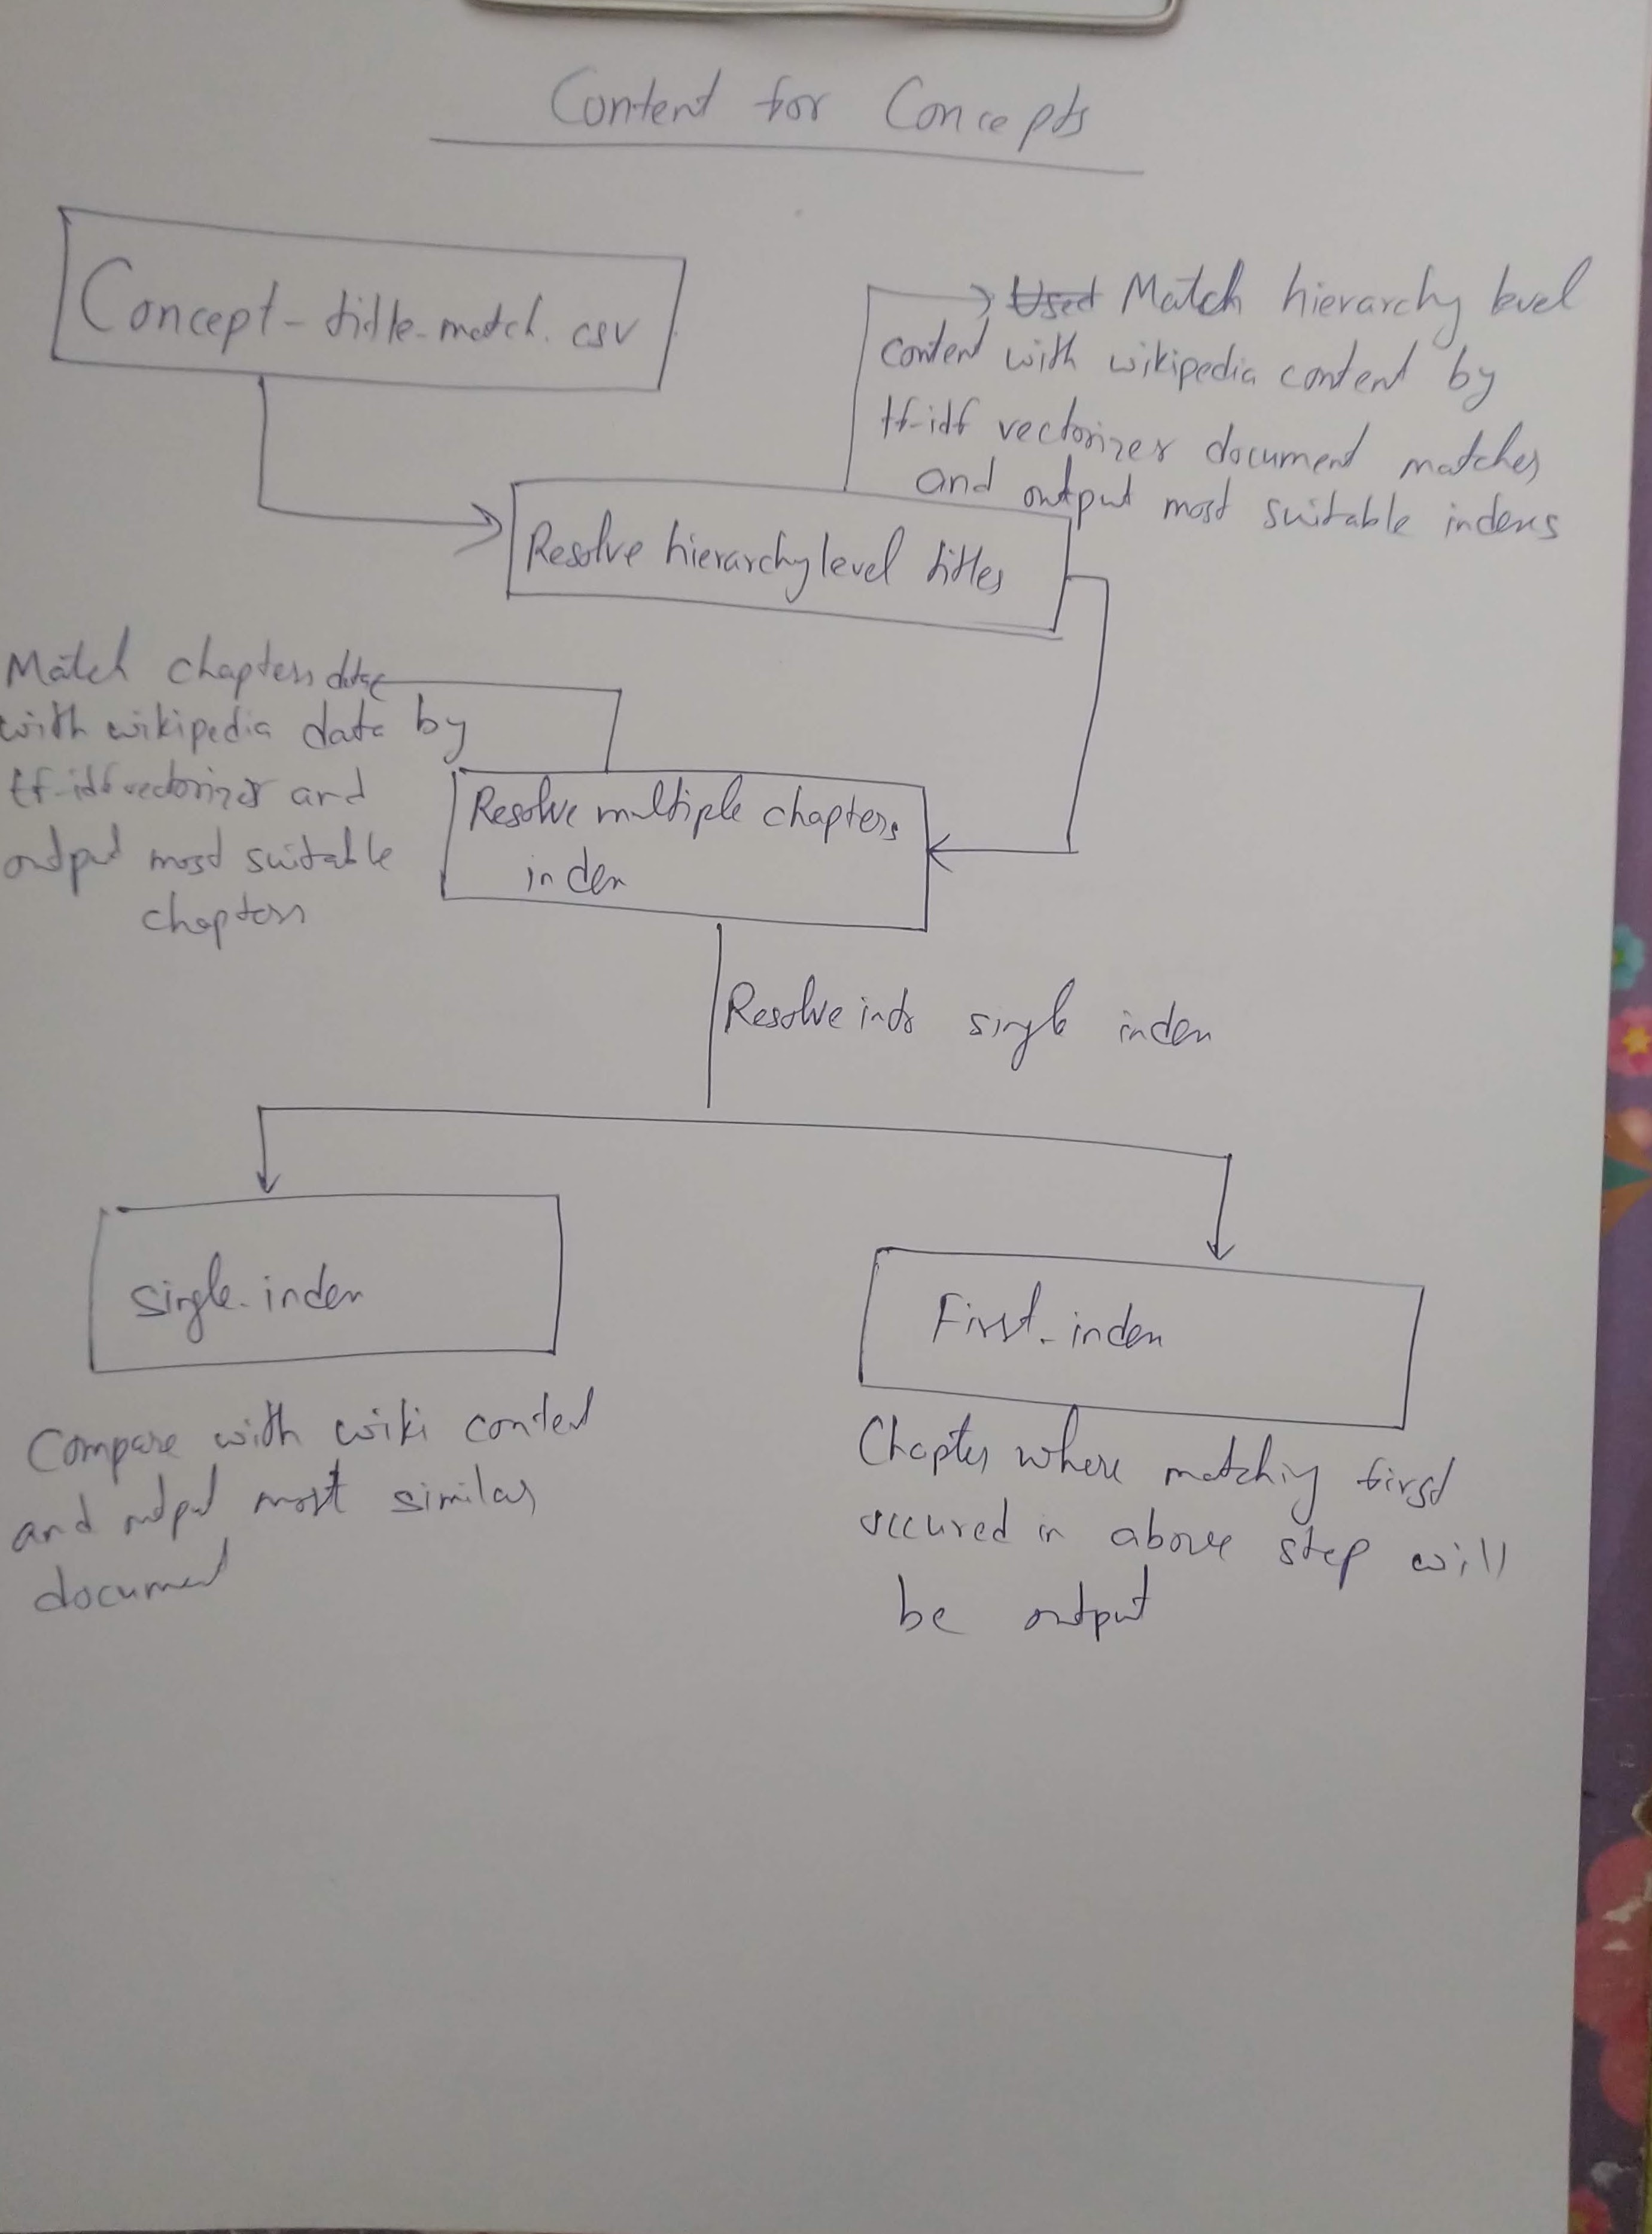 Content for Concepts
Concept-title-match.csv
Used Match hierarchy level
content with wikipedia content by
tf-idf vectorizer document matches
and output most suitable indexs
Resolve hierarchy level titles
Match chapters data
with wikipedia data by
tf-idf vectorizer and
output most suitable
chapters
Resolve multiple chapters
index
Resolve into single index
Single-index
First-index
Compare with wiki content
and output most similar
document
Chapter where matching first
occured in above step will
be output